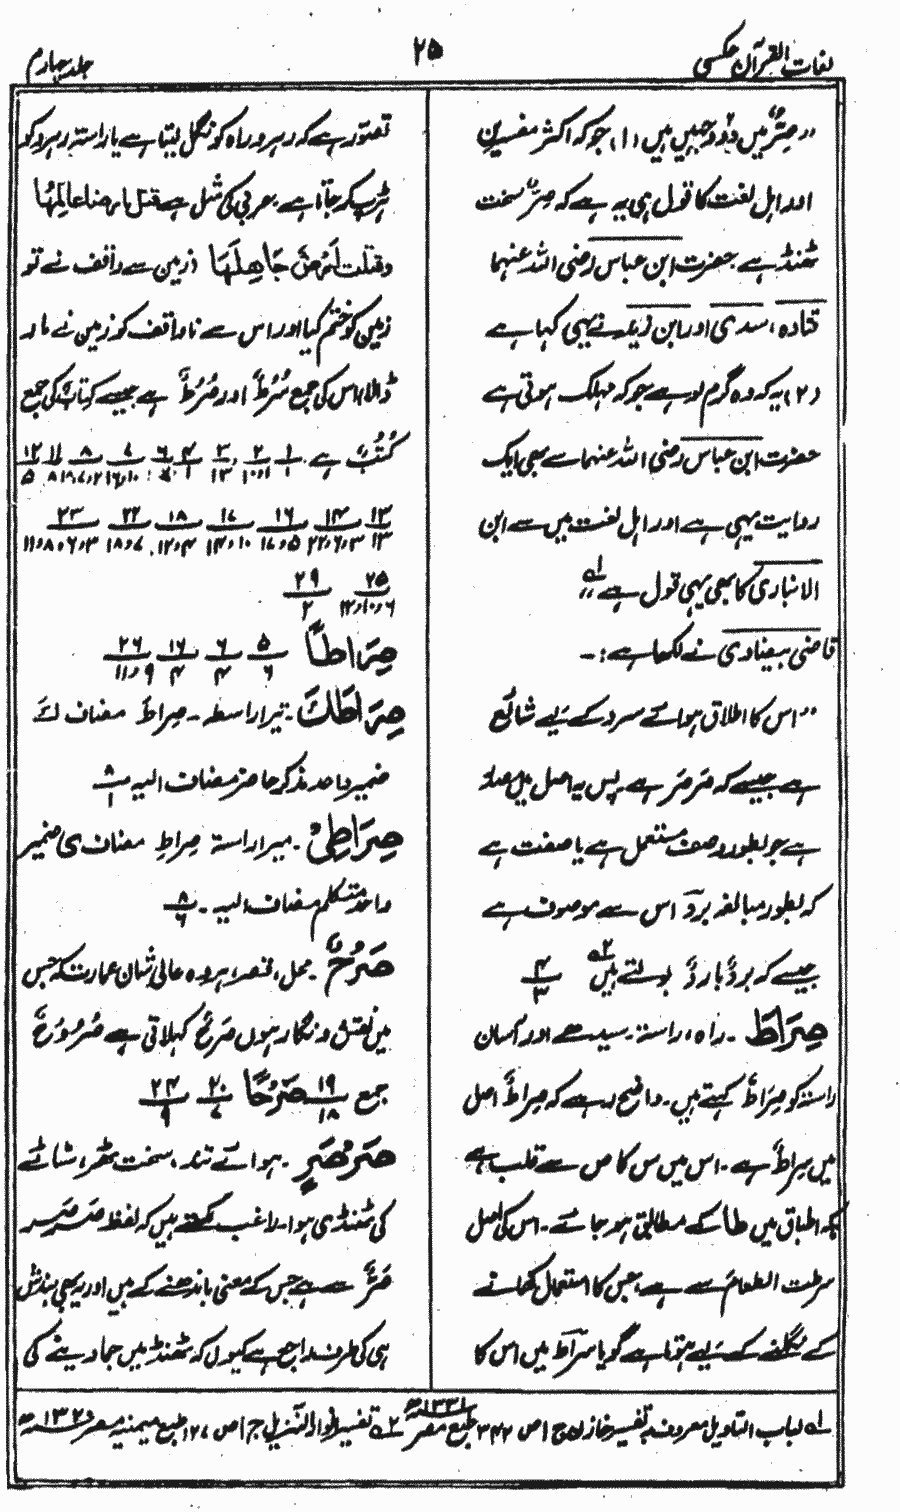 لغات القرآن عکسی
۲۵
جلد چہارم
”صِرٌّ میں دو وجہیں ہیں (۱) جو کہ اکثر مفسرین
اور اہل لغت کا قول ہی یہ ہے کہ صِرٌّ سخت
ٹھنڈ ہے حضرت ابن عباس رضی اللہ عنہما
قتادہ، سدی اور ابن زید نے یہی کہا ہے
(۲) یہ کہ وہ گرم لو ہے جو کہ مہلک ہوتی ہے
حضرت ابن عباس رضی اللہ عنہما سے بھی ایک
روایت یہی ہے اور اہل لغت میں سے ابن
الانباری کا بھی یہی قول ہے“ لہ
قاضی بیضاوی نے لکھا ہے :-
”اس کا اطلاق ہوائے سرد کے لیے شائع
ہے جیسے کہ صَرصَر ہے پس یہ اصل میں مصدر
ہے جو بطور وصف مستعمل ہے یا صفت ہے
کہ بطور مبالغہ برد اس سے موصوف ہے
جیسے کہ بردٌ باردٌ بولتے ہیں ۲ہ ۴/۳
صِرَاطَ ۔ راہ، راستہ ۔ سیدھے اور آسان
راستہ کو صِرَاطٌ کہتے ہیں ۔ واضح رہے کہ صِراطٌ اصل
میں سِراطٌ ہے ۔ اس میں س کا ص سے قلب ہے
کہ اطباق میں طا کے مطابق ہو جائے ۔ اس کی اصل
سرطت الطعام سے ہے، جس کا استعمال کھانے
کے نگلنے کے لیے ہوتا ہے گویا سراط میں اس کا
تصوّر ہے کہ رہرو راہ کو نگل لیتا ہے یا راستہ رہرو کو
ہڑپ کر جاتا ہے عربی کی مثل ہے قتل ارضا عالمھا
وقتلت ارض جاھلھا (زمین سے واقف نے تو
زمین کو ختم کیا اور اس سے ناواقف کو زمین نے مار
ڈالا) اس کی جمع سُرُطٌ اور صُرُطٌ ہے جیسے کتاب کی جمع
کُتُبٌ ہے
صِرَاطًا ۵/۶ ۶/۴ ۱۶/۴ ۲۶/۹،۱۱
صِرَاطَكَ ۔ تیرا راستہ ۔ صِراطَ مضاف كَ
ضمیر واحد مذکر حاضر مضاف الیہ ۸/۱
صِرَاطِیْ ۔ میرا راستہ صِراطِ مضاف ی ضمیر
واحد متکلم مضاف الیہ ۔ ۸/۶
صَرْحٌ ۔ محل، قصر، ہر وہ عالی شان عمارت کہ جس
میں نقش و نگار ہوں صَرحٌ کہلاتی ہے صُرُوْحٌ
جمع ۱۹/۱۸ صَرْحًا ۲۰/۷ ۲۴/۹
صَرْصَرٍ ۔ ہوائے تند، سخت ٹھر، شاٹے
کی ٹھنڈی ہوا۔ راغب لکھتے ہیں کہ لفظ صَرصَر
صَرٌّ سے ہے جس کے معنی باندھنے کے ہیں اور یہ بھی بندش
ہی کی طرف راجع ہے کیوں کہ ٹھنڈ میں جما دینے کی
لہ لباب التاویل معروف بہ تفسیر خازن ج ۱ ص ۳۴۲ طبع مصر ۱۳۳۱ھ ۲ہ تفسیر انوار التنزیل ج ۱ ص ۱۲۷ طبع میمنیہ مصر ۱۳۲۰ھ